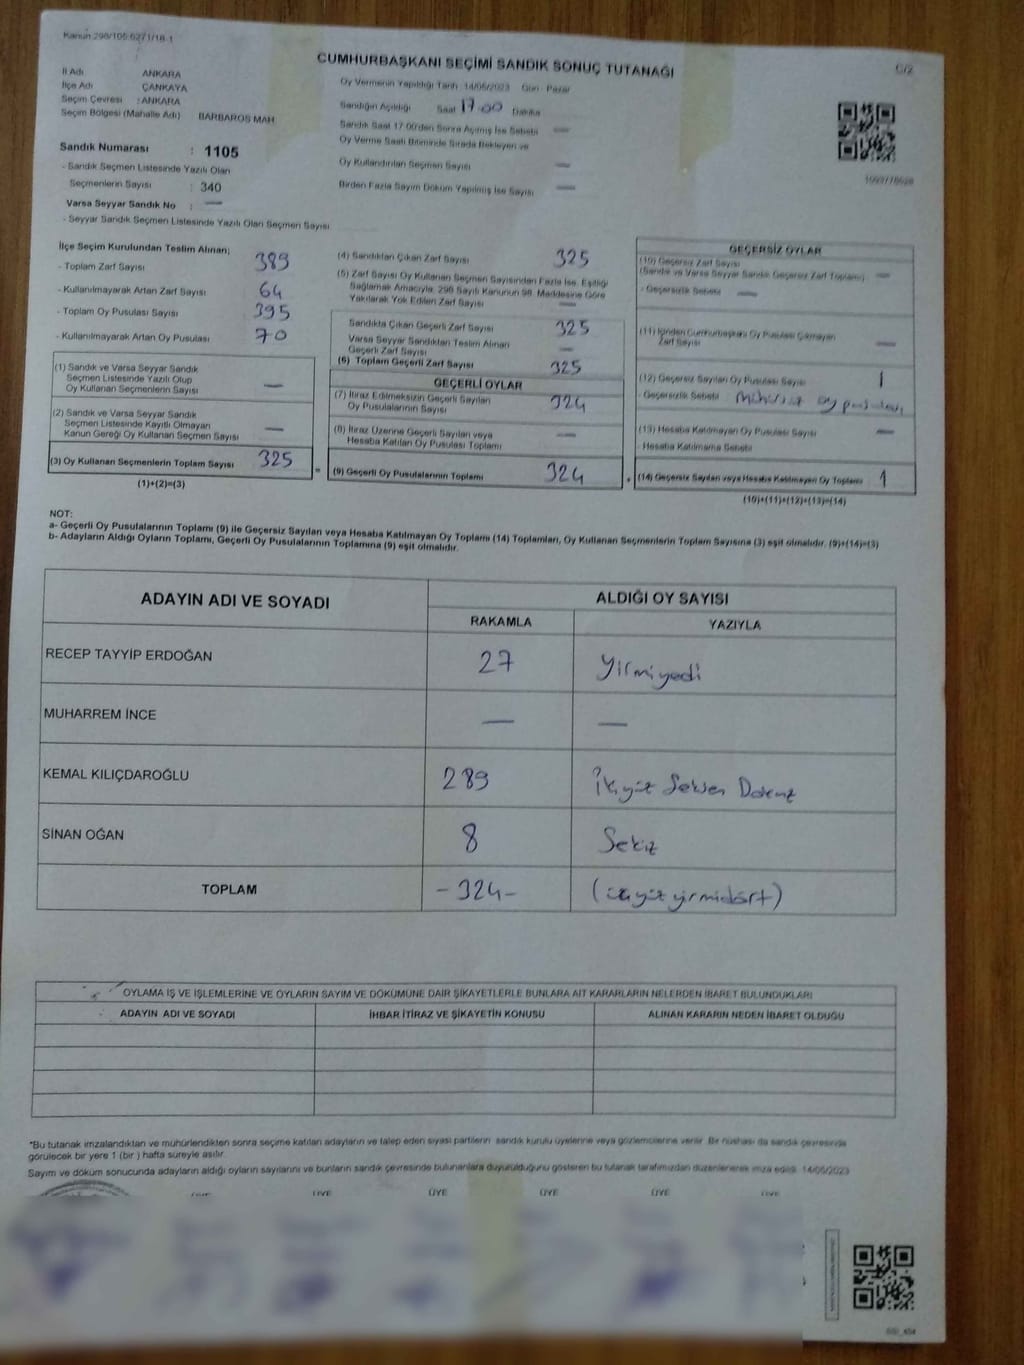 Kanun:298/105-6271/18-1
CUMHURBAŞKANI SEÇİMİ SANDIK SONUÇ TUTANAĞI
C/2
İl Adı ANKARA
İlçe Adı ÇANKAYA
Seçim Çevresi : ANKARA
Seçim Bölgesi (Mahalle Adı) BARBAROS MAH.
Sandık Numarası : 1105
- Sandık Seçmen Listesinde Yazılı Olan
Seçmenlerin Sayısı : 340
Varsa Seyyar Sandık No : —
- Seyyar Sandık Seçmen Listesinde Yazılı Olan Seçmen Sayısı
Oy Vermenin Yapıldığı Tarih : 14/05/2023 Gün : Pazar
Sandığın Açıldığı Saat 17.00 Dakika
Sandık Saat 17:00'den Sonra Açılmış İse Sebebi —
Oy Verme Saati Bitiminde Sırada Bekleyen ve
Oy Kullandırılan Seçmen Sayısı —
Birden Fazla Sayım Döküm Yapılmış İse Sayısı —
İlçe Seçim Kurulundan Teslim Alınan;
- Toplam Zarf Sayısı 389
- Kullanılmayarak Artan Zarf Sayısı 64
- Toplam Oy Pusulası Sayısı 395
- Kullanılmayarak Artan Oy Pusulası 70
(1) Sandık ve Varsa Seyyar Sandık
Seçmen Listesinde Yazılı Olup
Oy Kullanan Seçmenlerin Sayısı —
(2) Sandık ve Varsa Seyyar Sandık
Seçmen Listesinde Kayıtlı Olmayan
Kanun Gereği Oy Kullanan Seçmen Sayısı —
(3) Oy Kullanan Seçmenlerin Toplam Sayısı 325
(1)+(2)=(3)
(4) Sandıktan Çıkan Zarf Sayısı 325
(5) Zarf Sayısı Oy Kullanan Seçmen Sayısından Fazla İse, Eşitliği
Sağlamak Amacıyla, 298 Sayılı Kanunun 98. Maddesine Göre
Yakılarak Yok Edilen Zarf Sayısı —
Sandıkta Çıkan Geçerli Zarf Sayısı 325
Varsa Seyyar Sandıktan Teslim Alınan
Geçerli Zarf Sayısı —
(6) Toplam Geçerli Zarf Sayısı 325
GEÇERLİ OYLAR
(7) İtiraz Edilmeksizin Geçerli Sayılan
Oy Pusulalarının Sayısı 324
(8) İtiraz Üzerine Geçerli Sayılan veya
Hesaba Katılan Oy Pusulası Toplamı —
= (9) Geçerli Oy Pusulalarının Toplamı 324
GEÇERSİZ OYLAR
(10) Geçersiz Zarf Sayısı
(Sandık ve Varsa Seyyar Sandık Geçersiz Zarf Toplamı) —
- Geçersizlik Sebebi —
(11) İçinden Cumhurbaşkanı Oy Pusulası Çıkmayan
Zarf Sayısı —
(12) Geçersiz Sayılan Oy Pusulası Sayısı 1
- Geçersizlik Sebebi Mühürsüz oy pusulası
(13) Hesaba Katılmayan Oy Pusulası Sayısı —
- Hesaba Katılmama Sebebi
+ (14) Geçersiz Sayılan veya Hesaba Katılmayan Oy Toplamı 1
(10)+(11)+(12)+(13)=(14)
NOT:
a- Geçerli Oy Pusulalarının Toplamı (9) ile Geçersiz Sayılan veya Hesaba Katılmayan Oy Toplamı (14) Toplamları, Oy Kullanan Seçmenlerin Toplam Sayısına (3) eşit olmalıdır. (9)+(14)=(3)
b- Adayların Aldığı Oyların Toplamı, Geçerli Oy Pusulalarının Toplamına (9) eşit olmalıdır.
ADAYIN ADI VE SOYADI ALDIĞI OY SAYISI
RAKAMLA YAZIYLA
RECEP TAYYİP ERDOĞAN 27 Yirmiyedi
MUHARREM İNCE — —
KEMAL KILIÇDAROĞLU 289 İkiyüz Seksen Dokuz
SİNAN OĞAN 8 Sekiz
TOPLAM -324- (üçyüzyirmidört)
OYLAMA İŞ VE İŞLEMLERİNE VE OYLARIN SAYIM VE DÖKÜMÜNE DAİR ŞİKAYETLERLE BUNLARA AİT KARARLARIN NELERDEN İBARET BULUNDUKLARI
ADAYIN ADI VE SOYADI İHBAR İTİRAZ VE ŞİKAYETİN KONUSU ALINAN KARARIN NEDEN İBARET OLDUĞU
*Bu tutanak imzalandıktan ve mühürlendikten sonra seçime katılan adayların ve talep eden siyasi partilerin sandık kurulu üyelerine veya gözlemcilerine verilir. Bir nüshası da sandık çevresinde
görülecek bir yere 1 (bir ) hafta süreyle asılır.
Sayım ve döküm sonucunda adayların aldığı oyların sayılarını ve bunların sandık çevresinde bulunanlara duyurulduğunu gösteren bu tutanak tarafımızdan düzenlenerek imza edildi. 14/05/2023
ÜYE ÜYE ÜYE ÜYE ÜYE ÜYE